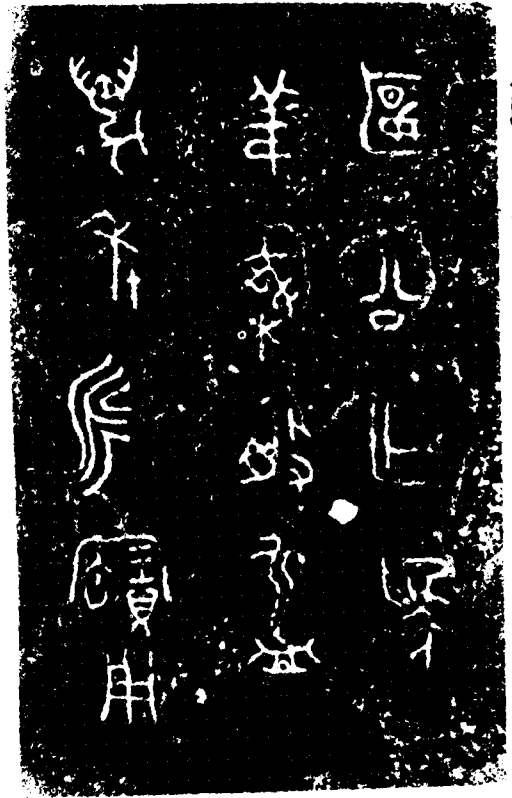 匽公乍為
姜乘般匜
萬年永寶用